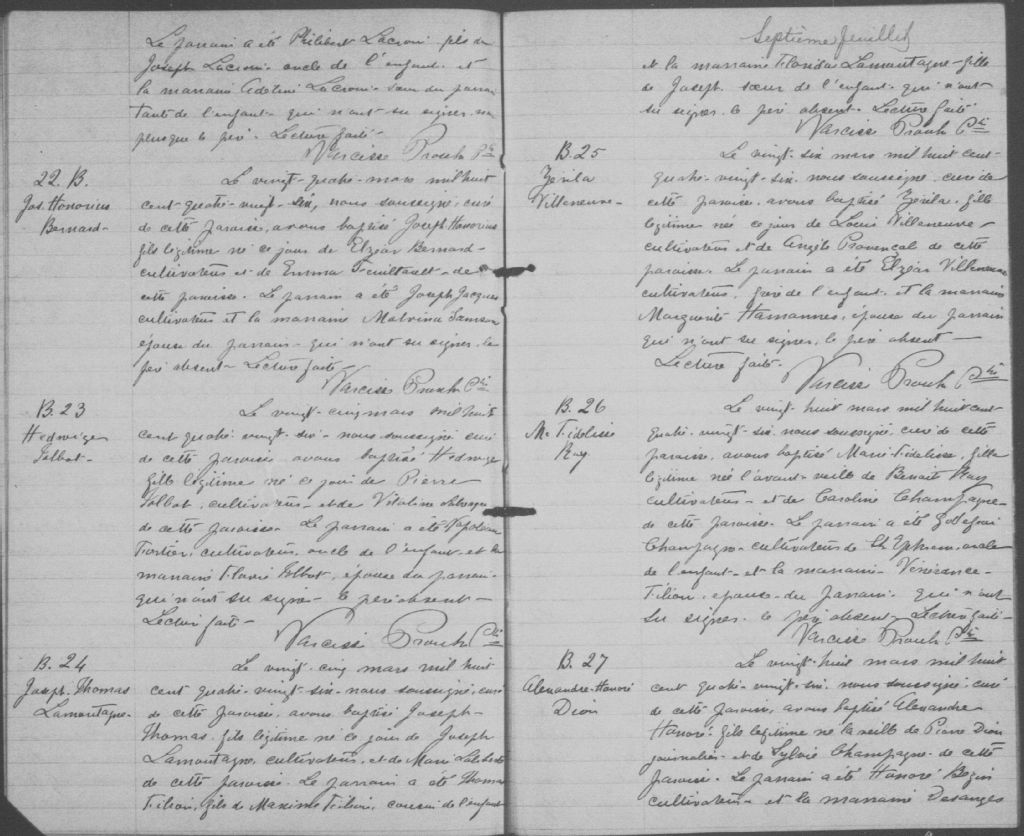 Le parrain a été Philibert Lacroix fils de
Joseph Lacroix oncle de l'enfant et
la marraine Adeline Lacroix sœur du parrain
tante de l'enfant qui n'ont su signer, non
plus que le père. Lecture faite
Narcisse Proulx Ptre
22. B.
Jos. Honorius
Bernard
Le vingt-quatre mars mil huit
cent quatre-vingt-six, nous soussigné, curé
de cette paroisse, avons baptisé Joseph Honorius
fils légitime né ce jour de Elzéar Bernard
cultivateur et de Emma Feuiltault de
cette paroisse. Le parrain a été Joseph Jacques
cultivateur et la marraine Malvina Samson
épouse du parrain qui n'ont su signer, le
père absent. Lecture faite
Narcisse Proulx Ptre
B. 23
Hedwige
Talbot
Le vingt-cinq mars mil huit
cent quatre-vingt-six nous soussigné curé
de cette paroisse avons baptisé Hedwige
fille légitime née ce jour de Pierre
Talbot, cultivateur et de Vitaline
de cette paroisse. Le parrain a été Napoléon
Fortier, cultivateur, oncle de l'enfant, et la
marraine Flavie Talbot, épouse du parrain
qui n'ont su signer le père absent
Lecture faite
Narcisse Proulx Ptre
B. 24
Joseph Thomas
Lamontagne
Le vingt-cinq mars mil huit
cent quatre-vingt-six nous soussigné, curé
de cette paroisse, avons baptisé Joseph
Thomas fils légitime né ce jour de Joseph
Lamontagne, cultivateur, et de Marie
de cette paroisse. Le parrain a été Thomas
Filion, fils de Maxime Filion, cousin de l'enfant
Septième feuillet
et la marraine Florida Lamontagne fille
de Joseph sœur de l'enfant qui n'ont
su signer, le père absent. Lecture faite
Narcisse Proulx Ptre
B. 25
Zérila
Villeneuve
Le vingt-six mars mil huit cent
quatre-vingt-six nous soussigné, curé de
cette paroisse, avons baptisé Zérila fille
légitime née ce jour de Louis Villeneuve
cultivateur et de Angèle Provençal de cette
paroisse. Le parrain a été Elzéar Villeneuve
cultivateur, frère de l'enfant et la marraine
Marguerite Hamannes, épouse du parrain
qui n'ont su signer, le père absent
Lecture faite.
Narcisse Proulx Ptre
B. 26
M. Fidélisse
Roy
Le vingt-huit mars mil huit cent
quatre-vingt-six nous soussigné, curé de cette
paroisse, avons baptisé Marie Fidélisse, fille
légitime née l'avant-veille de Benoit Roy
cultivateur et de Caroline Champagne
de cette paroisse. Le parrain a été Godefroi
Champagne cultivateur de St Ephrem, oncle
de l'enfant et la marraine Vénérance
Filion, épouse du parrain qui n'ont
su signer, le père absent Lecture faite
Narcisse Proulx Ptre
B. 27
Alexandre-Honoré
Dion
Le vingt-huit mars mil huit
cent quatre-vingt-six nous soussigné, curé
de cette paroisse, avons baptisé Alexandre
Honoré fils légitime né la veille de Pierre Dion
journalier et de Sylvie Champagne de cette
paroisse. Le parrain a été Honoré Bégin
cultivateur et la marraine Desanges